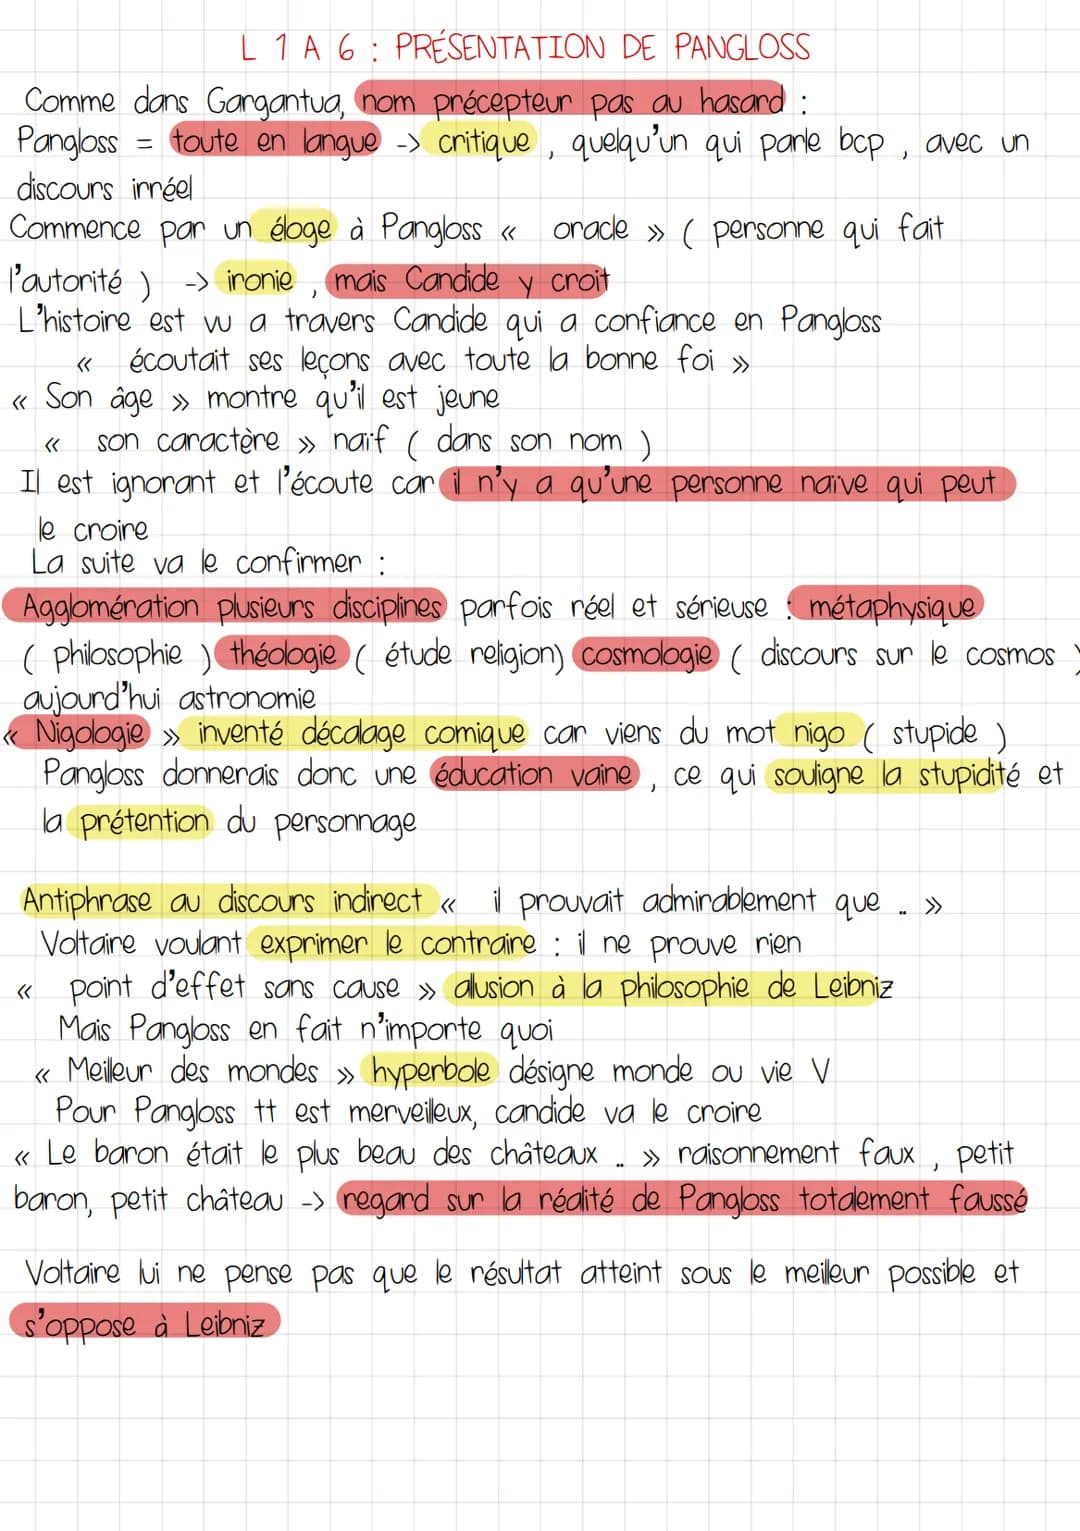 L 1 A 6 : PRÉSENTATION DE PANGLOSS
Comme dans Gargantua, nom précepteur pas au hasard :
Pangloss = toute en langue -> critique , quelqu'un qui parle bcp , avec un
discours irréel
Commence par un éloge à Pangloss « oracle » ( personne qui fait
l'autorité ) -> ironie , mais Candide y croit
L'histoire est vu a travers Candide qui a confiance en Pangloss
« écoutait ses leçons avec toute la bonne foi »
« Son âge » montre qu'il est jeune
« son caractère » naïf ( dans son nom )
Il est ignorant et l'écoute car il n'y a qu'une personne naïve qui peut
le croire
La suite va le confirmer :
Agglomération plusieurs disciplines parfois réel et sérieuse : métaphysique
( philosophie ) théologie ( étude religion) cosmologie ( discours sur le cosmos )
aujourd'hui astronomie
« Nigologie » inventé décalage comique car viens du mot nigo ( stupide )
Pangloss donnerais donc une éducation vaine , ce qui souligne la stupidité et
la prétention du personnage
Antiphrase au discours indirect « il prouvait admirablement que .. »
Voltaire voulant exprimer le contraire : il ne prouve rien
« point d'effet sans cause » allusion à la philosophie de Leibniz
Mais Pangloss en fait n'importe quoi
« Meilleur des mondes » hyperbole désigne monde ou vie V
Pour Pangloss tt est merveilleux, candide va le croire
« Le baron était le plus beau des châteaux .. » raisonnement faux , petit
baron, petit château -> regard sur la réalité de Pangloss totalement faussé
Voltaire lui ne pense pas que le résultat atteint sous le meilleur possible et
s'oppose à Leibniz